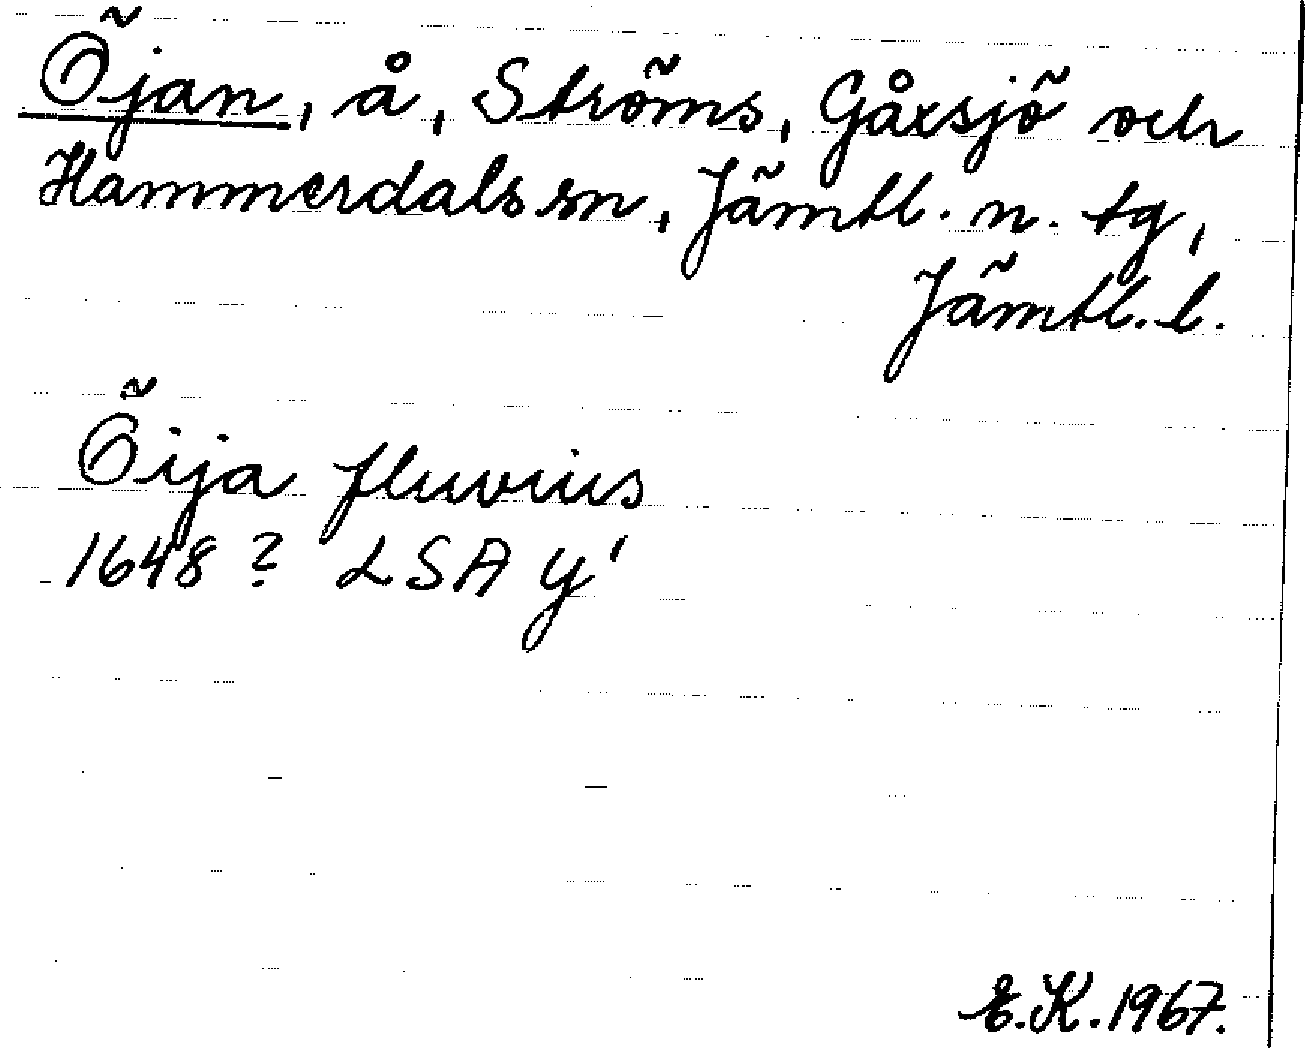 Öjan, å, Ströms, Gåxsjö och
Hammerdals sn, Jämtl. n. tg,
Jämtl. l.
Öija fluvius
1648? LSA y'
E.K. 1967.